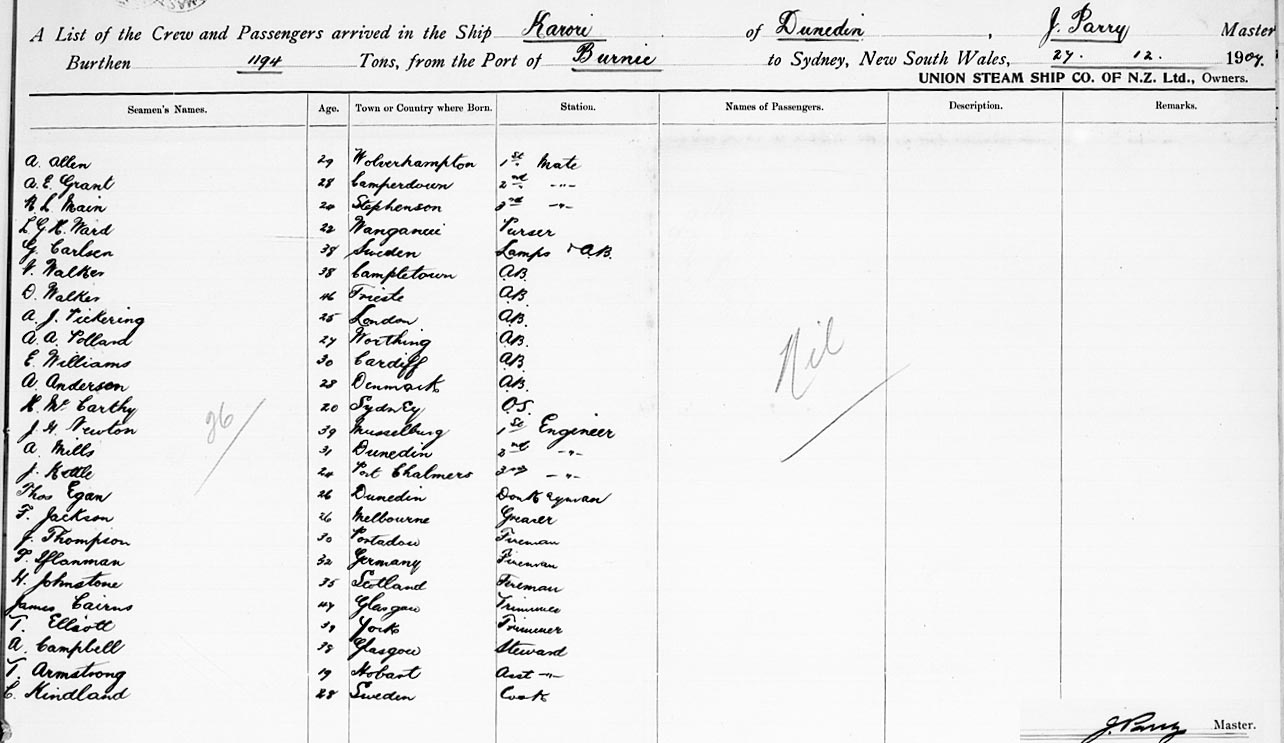 A List of the Crew and Passengers arrived in the Ship Karori of Dunedin, J. Parry Master
Burthen 1194 Tons, from the Port of Burnie to Sydney, New South Wales, 27. 12. 1907.
UNION STEAM SHIP CO. OF N.Z. Ltd., Owners.
Seamen's Names. Age. Town or Country where Born. Station. Names of Passengers. Description. Remarks.
A. Allen 29 Wolverhampton 1st Mate
A. E. Grant 28 Camperdown 2nd -"-
R L Main 24 Stephenson 3rd -"-
L G H. Ward 22 Wanganui Purser
G. Carlsen 38 Sweden Lamps & A.B.
V. Walker 38 Campletown A.B.
D. Walker 46 Trieste A.B.
A. J. Pickering 25 London A.B.
A. A. Pollard 27 Worthing A.B.
E. Williams 30 Cardiff A.B.
A. Anderson 28 Denmark A.B.
H. McCarthy 20 Sydney O.S.
J. H. Newton 39 Musselburg 1st Engineer
A. Mills 31 Dunedin 2nd -"-
J. Kettle 24 Port Chalmers 3rd -"-
Thos Egan 26 Dunedin Donkeyman
F. Jackson 26 Melbourne Greaser
J. Thompson 30 Portadow Fireman
P. Iflanman 32 Germany Fireman
H. Johnstone 35 Scotland Fireman
James Cairns 47 Glasgow Trimmer
T. Elliott 39 York Trimmer
A. Campbell 38 Glasgow Steward
T. Armstrong 19 Hobart Asst -"-
C. Kindland 28 Sweden Cook
26
Nil
J. Parry Master.